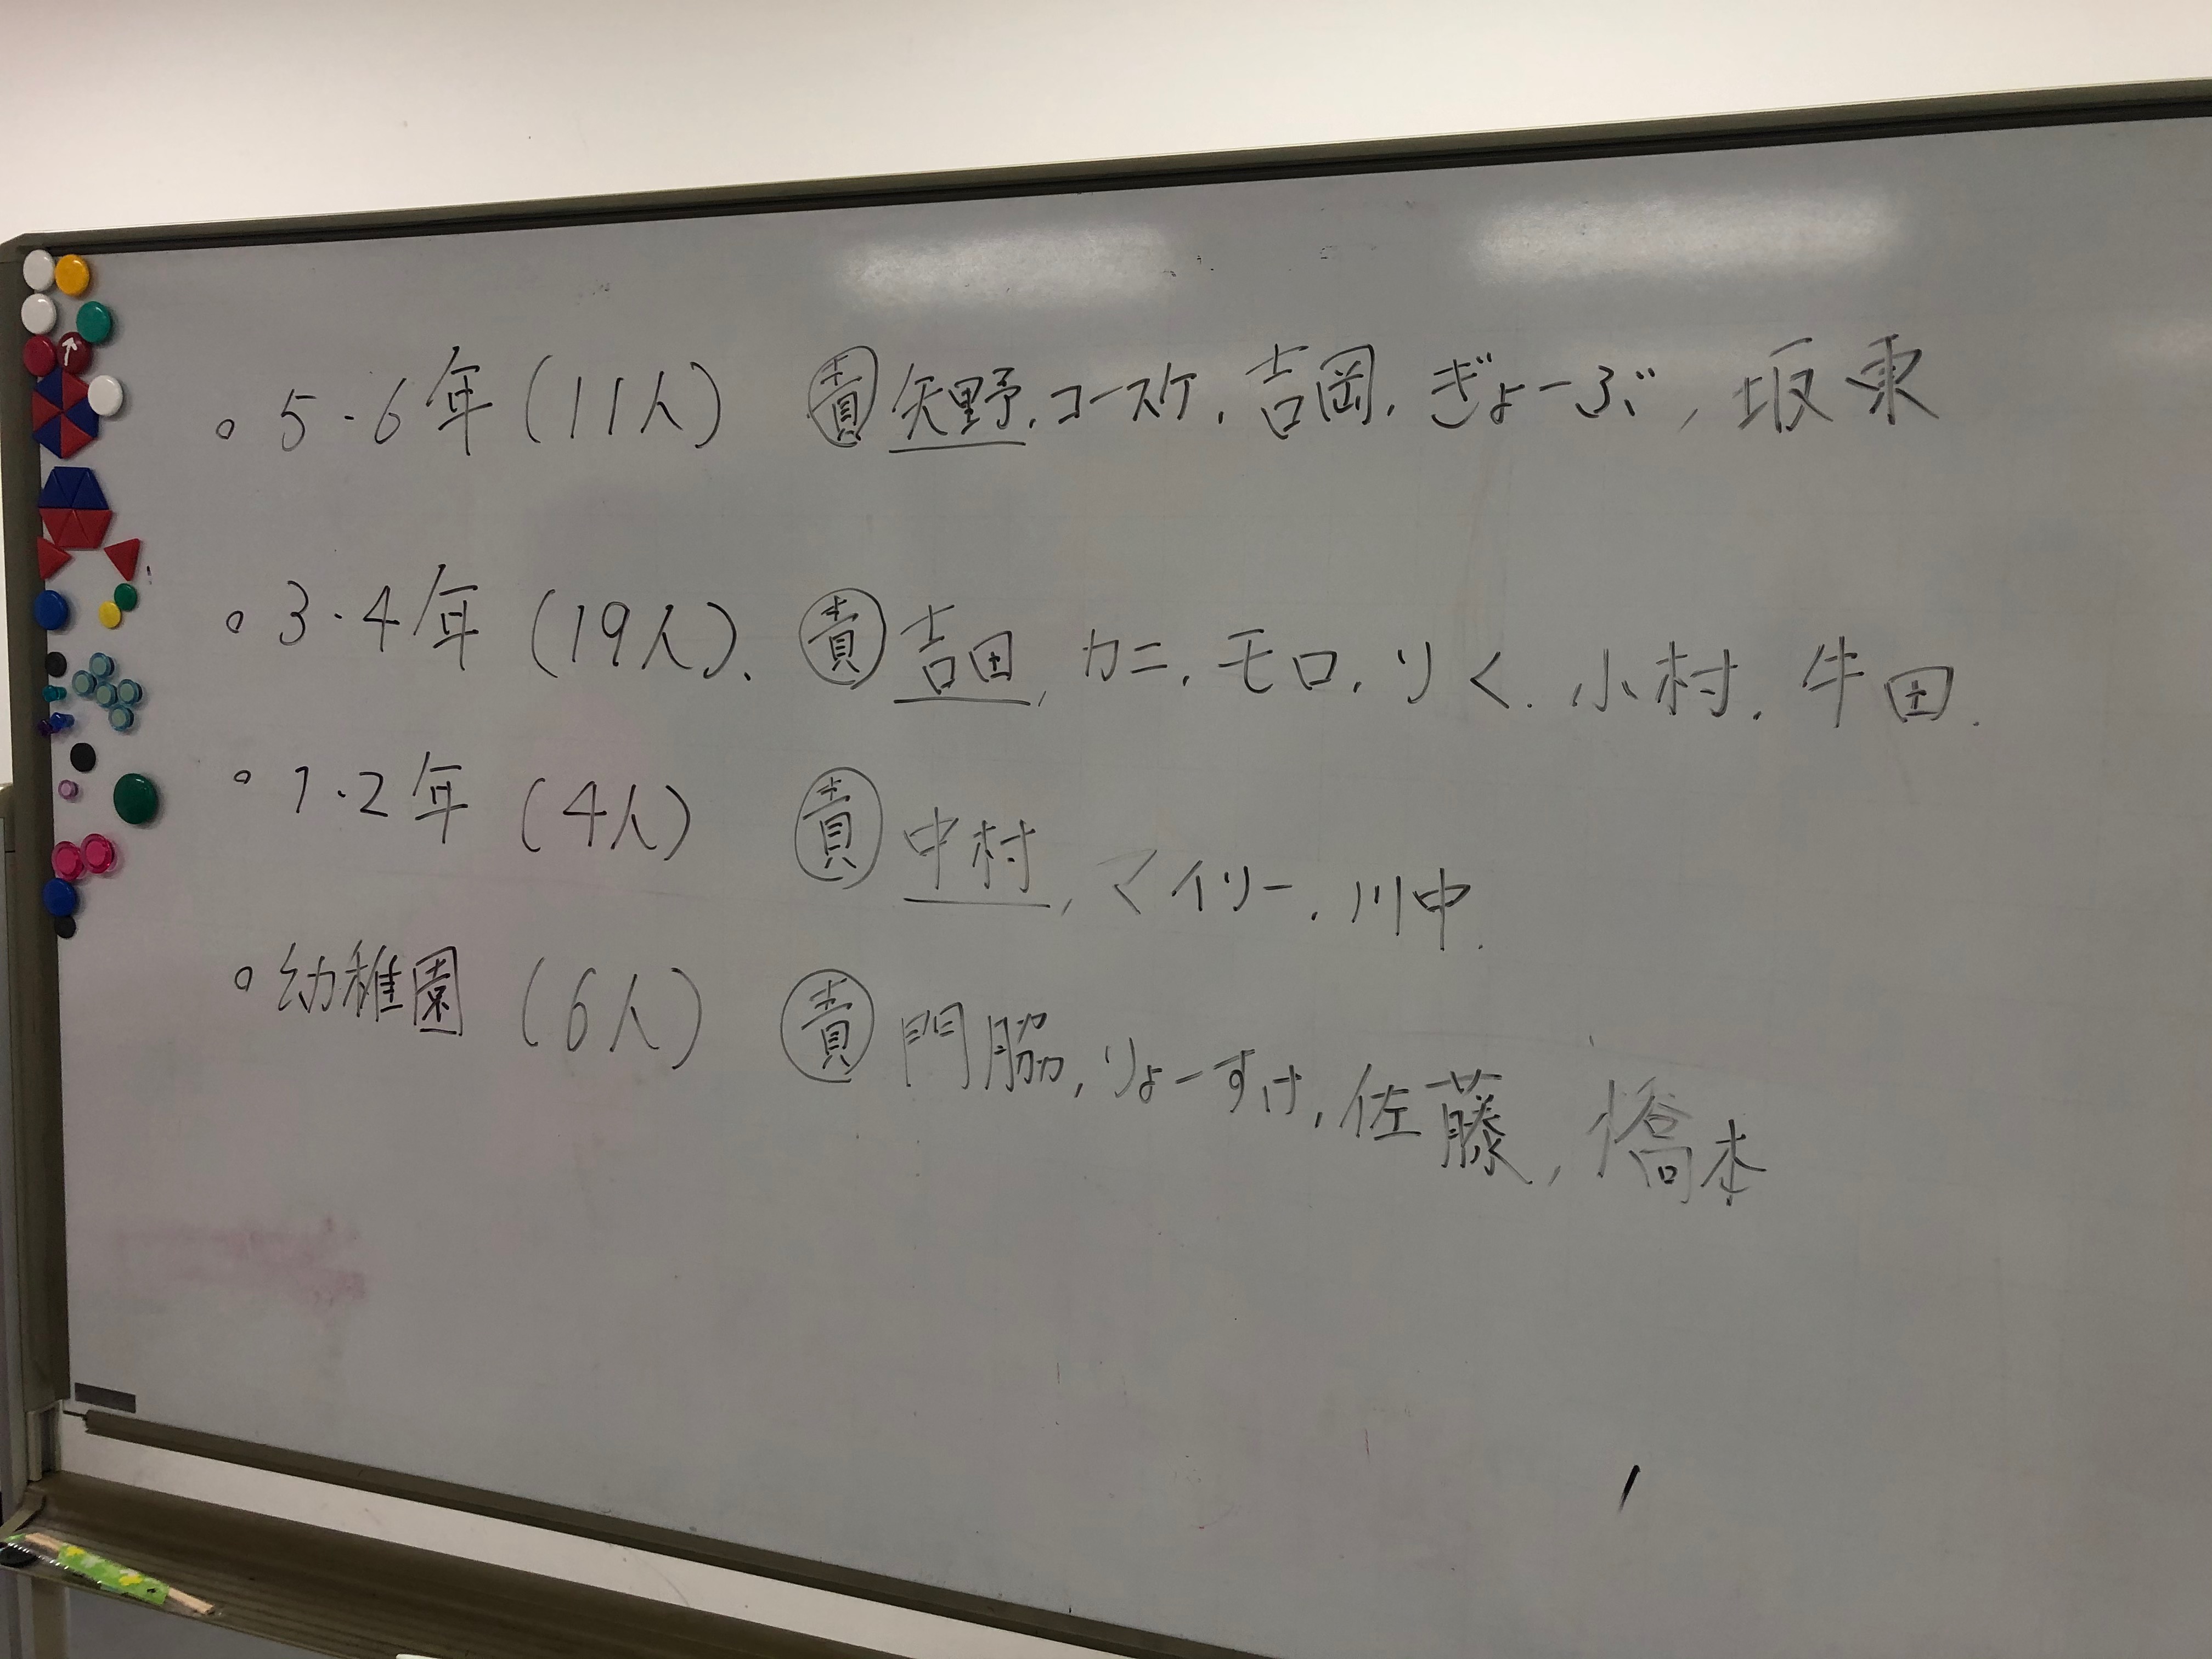 。5・6年(11人) ㊟責 矢野, コースケ, 吉岡, ぎょーぶ, 坂東
。3・4年(19人)、 責 吉田, カニ, モロ, りく. 小村, 牛田.
。1・2年(4人) 責 中村, マイリー, 川中.
。幼稚園(6人) 責 門脇, りょーすけ, 佐藤, 橋本